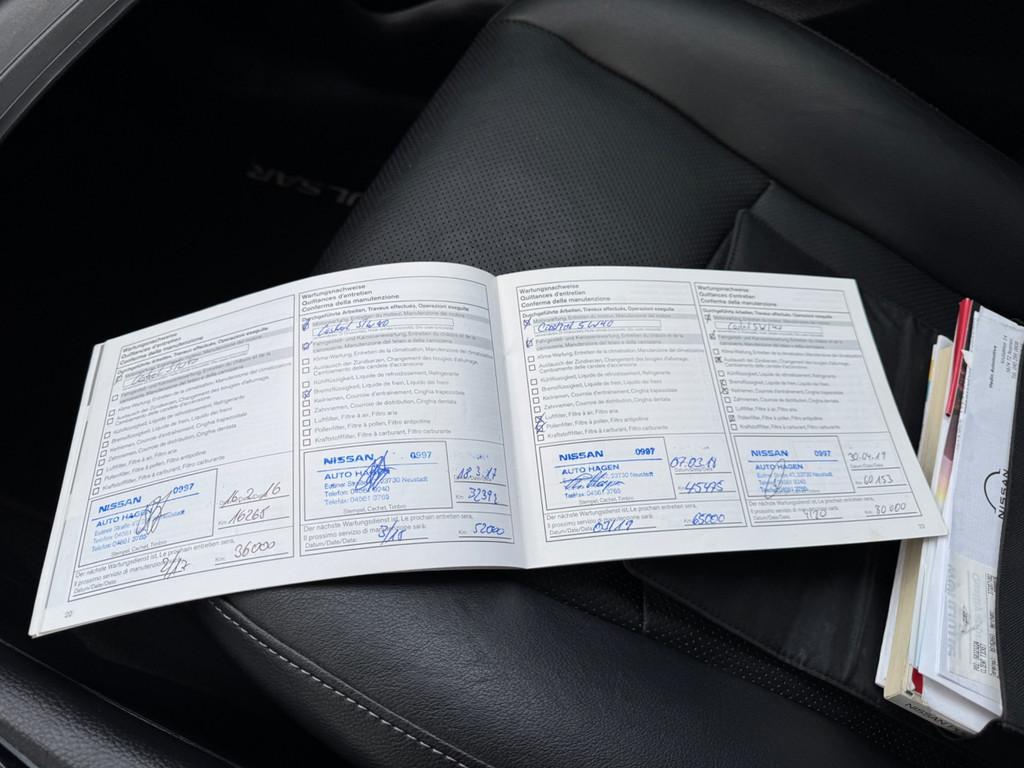 PULSAR
Wartungsnachweise
Quittances d'entretien
Conferma della manutenzione
Durchgeführte Arbeiten, Travaux effectués, Operazioni eseguite
Klima-Wartung, Entretien de la climatisation, Manutenzione del climatizzatore
Austausch der Zündkerzen, Changement des bougies d'allumage,
Cambiamento delle candele d'accensione
Kühlflüssigkeit, Liquide de refroidissement, Refrigerante
Bremsflüssigkeit, Liquide de frein, Liquido dei freni
Keilriemen, Courroie d'entraînement, Cinghia trapezoidale
Zahnriemen, Courroie de distribution, Cinghia dentata
Luftfilter, Filtre à air, Filtro aria
Pollenfilter, Filtre à pollen, Filtro antipolline
Kraftstofffilter, Filtre à carburant, Filtro carburante
NISSAN 0997
AUTO HAGEN
16.2.16
Km: 16268
Stempel, Cachet, Timbro
Der nächste Wartungsdienst ist, Le prochain entretien sera,
Il prossimo servizio di manutenzione sarà:
Datum/Date/Data: 2/17 Km: 36000
22
Wartungsnachweise
Quittances d'entretien
Conferma della manutenzione
Durchgeführte Arbeiten, Travaux effectués, Operazioni eseguite
Castrol 5W40
Klima-Wartung, Entretien de la climatisation, Manutenzione del climatizzatore
Austausch der Zündkerzen, Changement des bougies d'allumage,
Cambiamento delle candele d'accensione
Kühlflüssigkeit, Liquide de refroidissement, Refrigerante
Bremsflüssigkeit, Liquide de frein, Liquido dei freni
Keilriemen, Courroie d'entraînement, Cinghia trapezoidale
Zahnriemen, Courroie de distribution, Cinghia dentata
Luftfilter, Filtre à air, Filtro aria
Pollenfilter, Filtre à pollen, Filtro antipolline
Kraftstofffilter, Filtre à carburant, Filtro carburante
NISSAN 0997
AUTO HAGEN
23730 Neustadt
Telefax: 04561 3765
18.3.17
Stempel, Cachet, Timbro
Der nächste Wartungsdienst ist, Le prochain entretien sera,
Il prossimo servizio di manutenzione sarà:
Datum/Date/Data: 3/18 Km: 52000
Wartungsnachweise
Quittances d'entretien
Conferma della manutenzione
Durchgeführte Arbeiten, Travaux effectués, Operazioni eseguite
Castrol 5W40
Klima-Wartung, Entretien de la climatisation, Manutenzione del climatizzatore
Austausch der Zündkerzen, Changement des bougies d'allumage,
Cambiamento delle candele d'accensione
Kühlflüssigkeit, Liquide de refroidissement, Refrigerante
Bremsflüssigkeit, Liquide de frein, Liquido dei freni
Keilriemen, Courroie d'entraînement, Cinghia trapezoidale
Zahnriemen, Courroie de distribution, Cinghia dentata
Luftfilter, Filtre à air, Filtro aria
Pollenfilter, Filtre à pollen, Filtro antipolline
Kraftstofffilter, Filtre à carburant, Filtro carburante
NISSAN 0997
AUTO HAGEN
23730 Neustadt
Telefax: 04561 3765
07.03.18
Km: 45475
Stempel, Cachet, Timbro
Der nächste Wartungsdienst ist, Le prochain entretien sera,
Il prossimo servizio di manutenzione sarà:
Datum/Date/Data: 03/19 Km: 65000
Wartungsnachweise
Quittances d'entretien
Conferma della manutenzione
Durchgeführte Arbeiten, Travaux effectués, Operazioni eseguite
5W40
Klima-Wartung, Entretien de la climatisation, Manutenzione del climatizzatore
Austausch der Zündkerzen, Changement des bougies d'allumage,
Cambiamento delle candele d'accensione
Kühlflüssigkeit, Liquide de refroidissement, Refrigerante
Bremsflüssigkeit, Liquide de frein, Liquido dei freni
Keilriemen, Courroie d'entraînement, Cinghia trapezoidale
Zahnriemen, Courroie de distribution, Cinghia dentata
Luftfilter, Filtre à air, Filtro aria
Pollenfilter, Filtre à pollen, Filtro antipolline
Kraftstofffilter, Filtre à carburant, Filtro carburante
NISSAN 0997
AUTO HAGEN
23730 Neustadt
30.04.19
Km: 60153
Stempel, Cachet, Timbro
Der nächste Wartungsdienst ist, Le prochain entretien sera,
Il prossimo servizio di manutenzione sarà:
Datum/Date/Data: 4/20
23
NISSAN
NISSAN